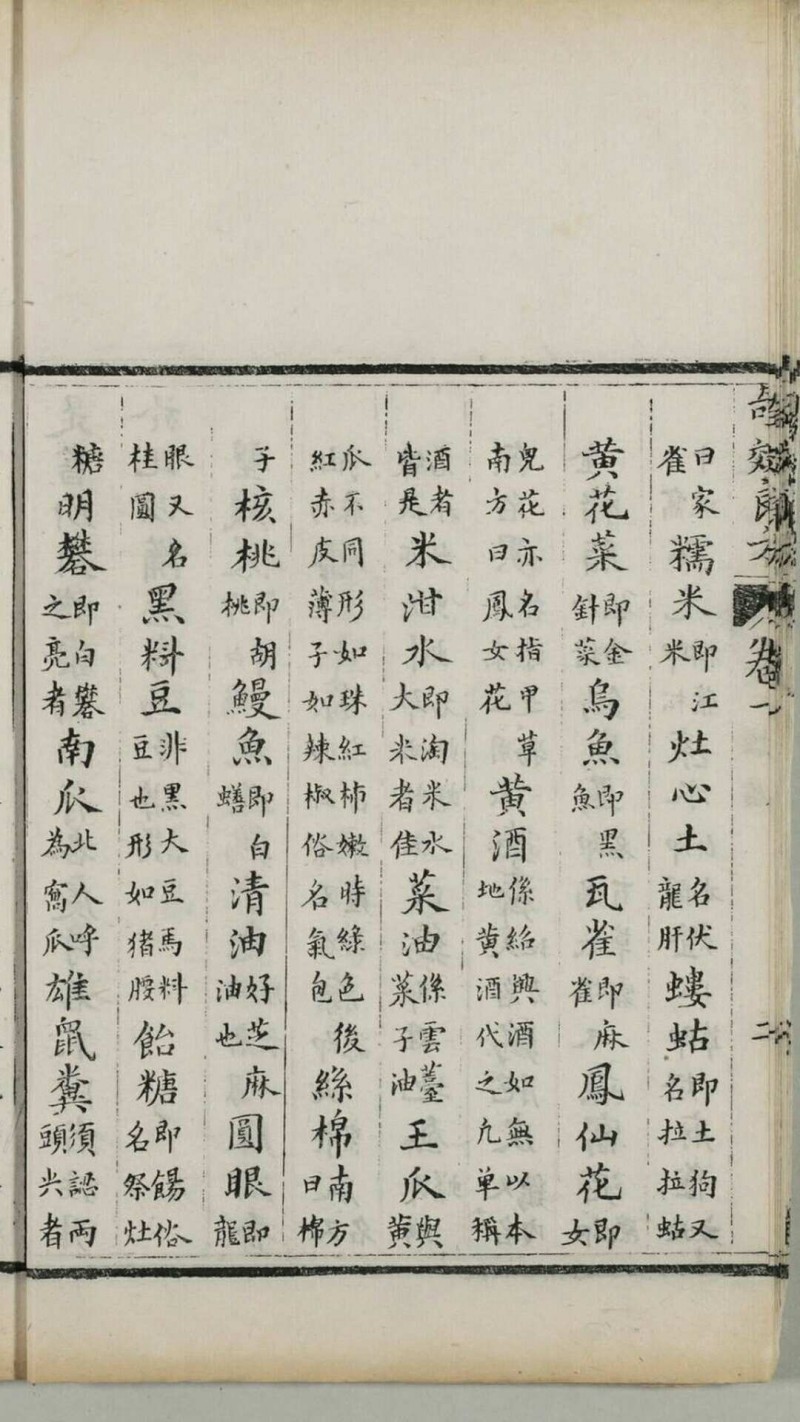 奇效方 卷一 二
曰家雀糯米即江米灶心土名伏龍肝螻蛄即土狗又名拉拉蛄
黄花菜即金針菜烏魚即黑魚瓦雀即麻雀鳳仙花即女
兒花亦名指甲草南方曰鳳女花黄酒係紹興酒如無以本地黄酒代之凢单稱
酒者皆是米泔水即淘米水大米者佳菜油係雲薹菜子油王瓜與黄
瓜不同形如珠紅柿嫩時綠色後紅赤皮薄子如辣椒俗名氣包絲棉南方曰棉
子核桃即胡桃鰻魚即白鱔清油好芝麻油也圓眼即龍
眼又名桂圓黑料豆非黑大豆馬料豆也形如猪腰飴糖即餳俗名祭灶
糖明礬即白礬之亮者南瓜北人呼為窩瓜雄鼠糞須認兩頭尖者